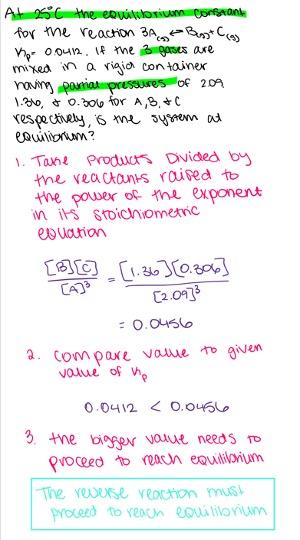 At 25°C the equilibrium constant
for the reaction 3A(g) ↔ B(g) + C(g)
Kp = 0.0412. If the 3 gases are
mixed in a rigid container
having partial pressures of 2.09
1.36, & 0.306 for A, B, & C
respectively, is the system at
equilibrium?
1. Take Products Divided by
the reactants raised to
the power of the exponent
in its stoichiometric
equation
[B][C] / [A]³ = [1.36][0.306] / [2.09]³
= 0.0456
2. Compare value to given
value of Kp
0.0412 < 0.0456
3. the bigger value needs to
proceed to reach equilibrium
The reverse reaction must
proceed to reach equilibrium